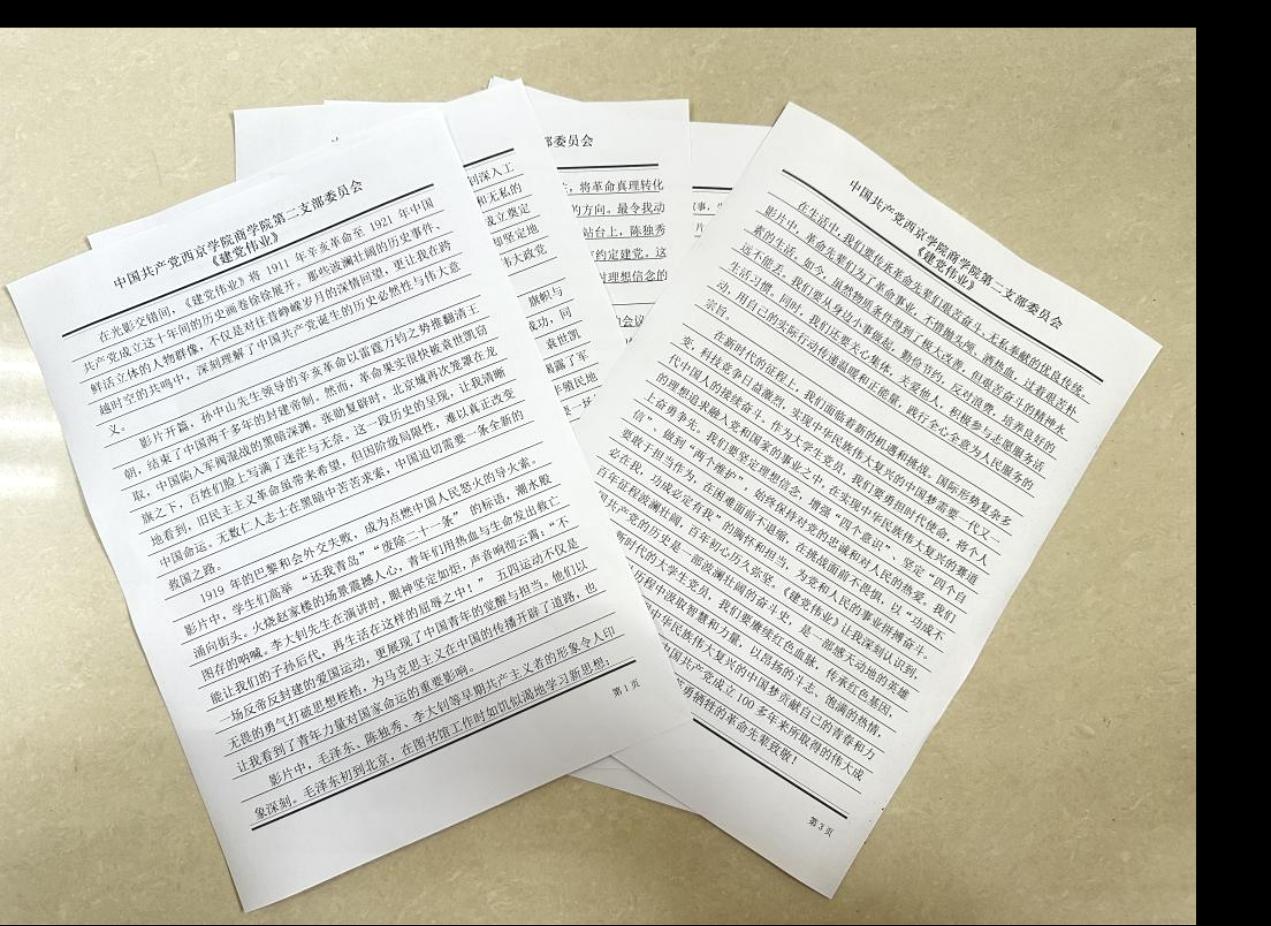 中国共产党西京学院商学院第二支部委员会
《建党伟业》
在光影交错间，《建党伟业》将 1911 年辛亥革命至 1921 年中国
共产党成立这十年间的历史画卷徐徐展开。那些波澜壮阔的历史事件、
鲜活立体的人物群像，不仅是对往昔峥嵘岁月的深情回望，更让我在跨
越时空的共鸣中，深刻理解了中国共产党诞生的历史必然性与伟大意
义。
影片开篇，孙中山先生领导的辛亥革命以雷霆万钧之势推翻清王
朝，结束了中国两千多年的封建帝制。然而，革命果实很快被袁世凯窃
取，中国陷入军阀混战的黑暗深渊。张勋复辟时，北京城再次笼罩在龙
旗之下，百姓们脸上写满了迷茫与无奈。这一段历史的呈现，让我清晰
地看到，旧民主主义革命虽带来希望，但因阶级局限性，难以真正改变
中国命运。无数仁人志士在黑暗中苦苦求索，中国迫切需要一条全新的
救国之路。
1919 年的巴黎和会外交失败，成为点燃中国人民怒火的导火索。
影片中，学生们高举“还我青岛”“废除二十一条”的标语，潮水般
涌向街头。火烧赵家楼的场景震撼人心，青年们用热血与生命发出救亡
图存的呐喊。李大钊先生在演讲时，眼神坚定如炬，声音响彻云霄：“不
能让我们的子孙后代，再生活在这样的屈辱之中！”五四运动不仅是
一场反帝反封建的爱国运动，更展现了中国青年的觉醒与担当。他们以
无畏的勇气打破思想桎梏，为马克思主义在中国的传播开辟了道路，也
让我看到了青年力量对国家命运的重要影响。
影片中，毛泽东、陈独秀、李大钊等早期共产主义者的形象令人印
象深刻。毛泽东初到北京，在图书馆工作时如饥似渴地学习新思想；
第 1 页
到深入工
和无私的
成立奠定
却坚定地
伟大政党
旗帜与
成功，同
袁世凯
暴露了军
半殖民地
部委员会
，将革命真理转化
的方向。最令我动
站台上，陈独秀
约定建党，这
对理想信念的
会议
中国共产党西京学院商学院第二支部委员会
《建党伟业》
在生活中，我们要传承革命先辈们艰苦奋斗、无私奉献的优良传统。
影片中，革命先辈们为了革命事业，不惜抛头颅、洒热血，过着艰苦朴
素的生活。如今，虽然物质条件得到了极大改善，但艰苦奋斗的精神永
远不能丢。我们要从身边小事做起，勤俭节约，反对浪费，培养良好的
生活习惯。同时，我们还要关心集体，关爱他人，积极参与志愿服务活
动，用自己的实际行动传递温暖和正能量，践行全心全意为人民服务的
宗旨。
在新时代的征程上，我们面临着新的机遇和挑战。国际形势复杂多
变，科技竞争日益激烈，实现中华民族伟大复兴的中国梦需要一代又一
代中国人的接续奋斗。作为大学生党员，我们要勇担时代使命，将个人
的理想追求融入党和国家的事业之中，在实现中华民族伟大复兴的赛道
上奋勇争先。我们要坚定理想信念，增强“四个意识”、坚定“四个自
信”、做到“两个维护”，始终保持对党的忠诚和对人民的热爱。我们
要敢于担当作为，在困难面前不退缩，在挑战面前不畏惧，以“功成不
必在我，功成必定有我”的胸怀和担当，为党和人民的事业拼搏奋斗。
百年征程波澜壮阔，百年初心历久弥坚。《建党伟业》让我深刻认识到，
国共产党的历史是一部波澜壮阔的奋斗史，是一部感天动地的英雄
新时代的大学生党员，我们要赓续红色血脉，传承红色基因，
历程中汲取智慧和力量，以昂扬的斗志、饱满的热情，
中华民族伟大复兴的中国梦贡献自己的青春和力
中国共产党成立 100 多年来所取得的伟大成
勇牺牲的革命先辈致敬！
第 3 页